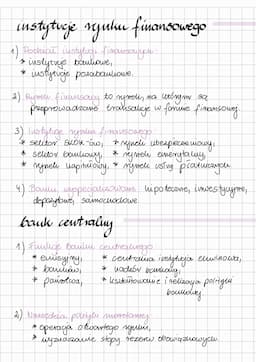 instytucje rynku finansowego
1) Podział instytucji finansowych:
* instytucje bankowe,
* instytucje parabankowe.
2) Rynek finansowy to rynek, na którym są
przeprowadzane transakcje w formie finansowej.
3) Instytucje rynku finansowego:
* sektor SKOK-ów, * rynek ubezpieczeniowy,
* sektor bankowy, * rynek emerytalny,
* rynek kapitałowy, * rynek usług płatniczych.
4) Banki wyspecjalizowane: hipoteczne, inwestycyjne,
depozytowe, samochodowe.
bank centralny
1) Funkcje banku centralnego
* emisyjny, * centralna instytucja
* banków, * nadzór bankowy,
* państwa, * kształtowanie i realizacja polityki
bankowej
2) Narzędzia polityki monetarnej:
* operacje otwartego rynku,
* wyznaczanie stopy rezerw obowiązkowych.